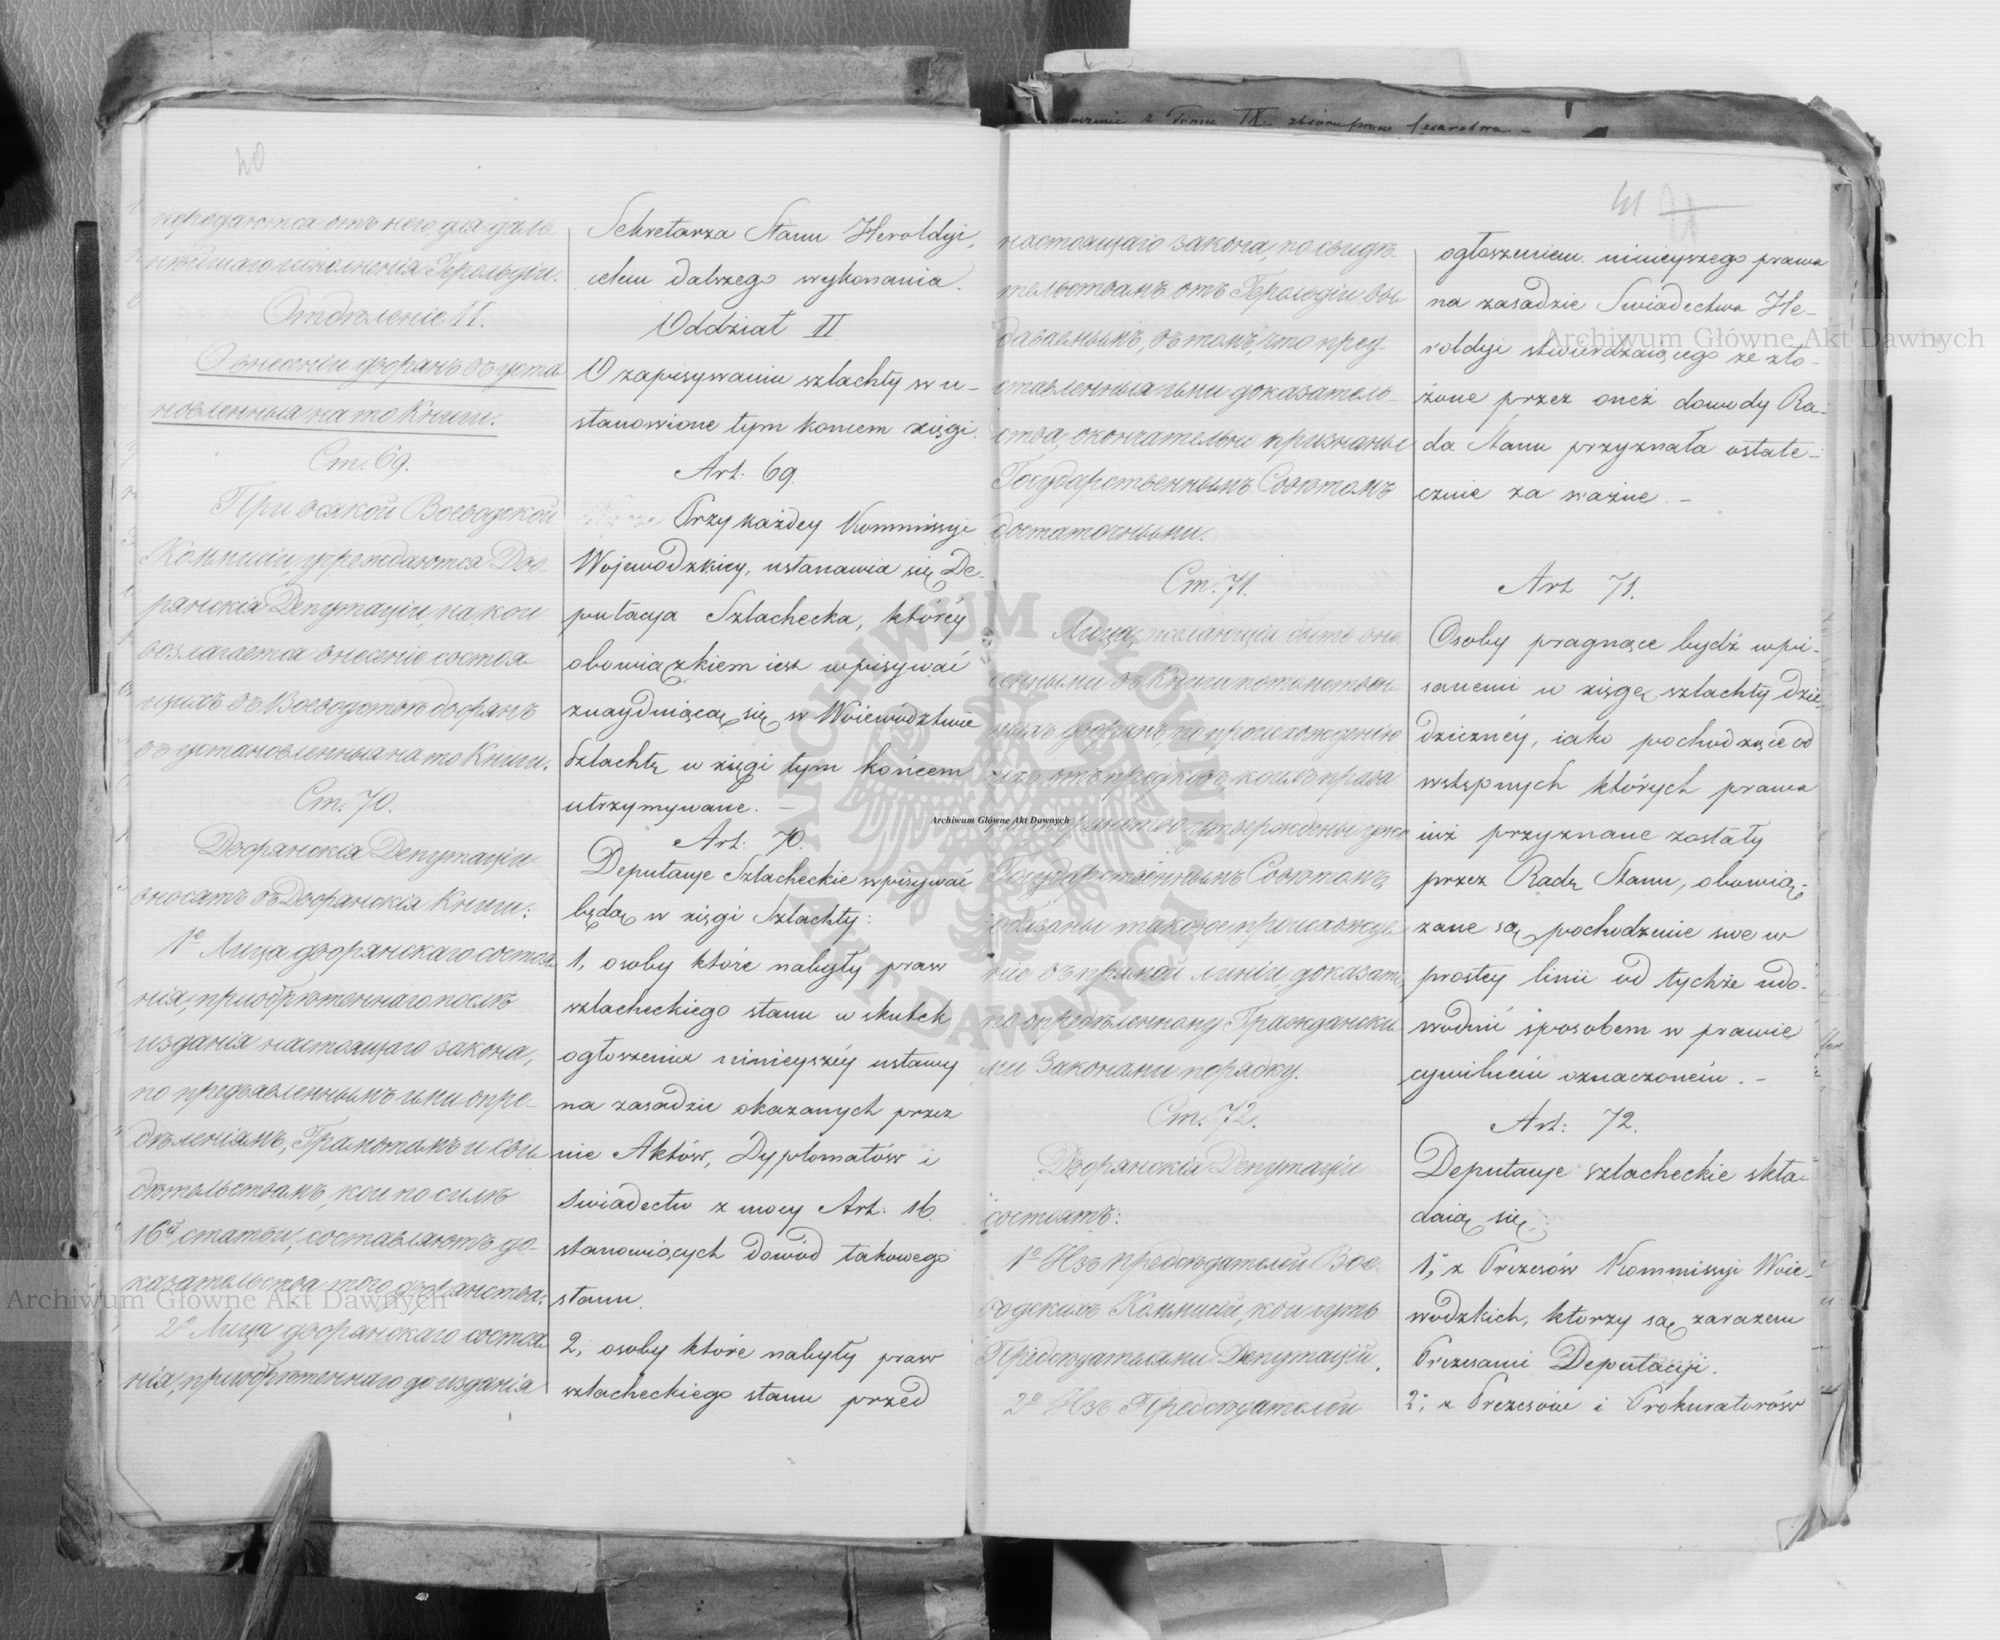 40
передаются отъ него для даль-
нѣйшаго исполненія Герольдіи.
Отдѣленіе II.
О внесеніи дворянъ въ уста-
новленныя на то Книги.
Ст. 69.
При всякой Воеводской
Коммисіи учреждаются Дво-
рянскія Депутаціи, на кои
возлагается внесеніе состоя-
щихъ въ Воеводствѣ дворянъ
въ установленныя на то Книги.
Ст. 70.
Дворянскія Депутаціи
вносятъ въ Дворянскія Книги:
1е Лица дворянскаго состоя-
нія, пріобрѣтеннаго послѣ
изданія настоящаго закона,
по предъявленнымъ ими опре-
дѣленіямъ, Грамотамъ и сви-
дѣтельствамъ, кои по силѣ
16й статьи, составляютъ до-
казательства того дворянства.
2е Лица дворянскаго состоя-
нія, пріобрѣтеннаго до изданія
Sekretarza Stanu Heroldyi,
celem dalszego wykonania.
Oddział II
O zapisywaniu szlachty w u-
stanowione tym koncem xięgi.
Art: 69.
Przy każdey Kommissyi
Wojewodzkiey, ustanawia się De-
putacya Szlachecka, któréy
obowiązkiem iest wpisywać
znayduiącą się w Woiewództwie
Szlachtę w xięgi tym końcem
utrzymywane. —
Art: 70.
Deputacye Szlacheckie wpisywać
będą w xięgi Szlachty:
1, osoby które nabyły praw
szlacheckiego stanu w skutek
ogłoszenia ninieyszéy ustawy
na zasadzie okazanych przez
nie Aktów, Dyplomatów i
Swiadectw z mocy Art: 16.
stanowiących dowód takowego
stanu.
2, osoby które nabyły praw
szlacheckiego stanu przed
Tomu IX.
41
настоящаго закона, по свидѣ-
тельствамъ отъ Герольдіи вы-
даваемымъ, въ томъ, что пред-
ставленныя ими доказатель-
ства, окончательно признаны
Государственнымъ Совѣтомъ
достаточными.
Ст. 71.
Лица, желающія быть вне-
сенными въ Книги потомствен-
ныхъ дворянъ, по происхожденію
ихъ отъ предковъ, коихъ права
на дворянство утверждены уже
Государственнымъ Совѣтомъ,
обязаны таковое происхожде-
ніе въ прямой линіи, доказать
по опредѣленному Граждански-
ми Законами порядку.
Ст. 72.
Дворянскія Депутаціи
состоятъ:
1е Изъ Предсѣдателей Вое-
водскихъ Коммисій, кои суть
Предсѣдательми Депутацій.
2е Изъ Предсѣдателей
ogłoszeniem ninieyszego prawa
na zasadzie Swiadectwa He-
roldyi stwierdzaiącego ze zło-
żone przez oneż dowody Ra-
da Stanu przyznała ostate-
cznie za ważne. —
Art 71.
Osoby pragnące bydź wpi-
sanemi w xięgę szlachty dzie-
dzicznéy, iako pochodzące od
wstępnych których prawa
iuż przyznane zostały
przez Radę Stanu, obowią-
zane są pochodzenie swe w
prostey linii od tychże udo-
wodnić sposobem w prawie
cywilnéin oznaczonéin. —
Art: 72.
Deputacye szlacheckie skła-
daią się:
1; z Prezesów Kommissyi Woie-
wodzkich, ktorzy są zarazem
Prezesami Deputacyi.
2; z Prezesów i Prokuratorów
Archiwum Główne Akt Dawnych
Archiwum Główne Akt Dawnych
Archiwum Główne Akt Dawnych